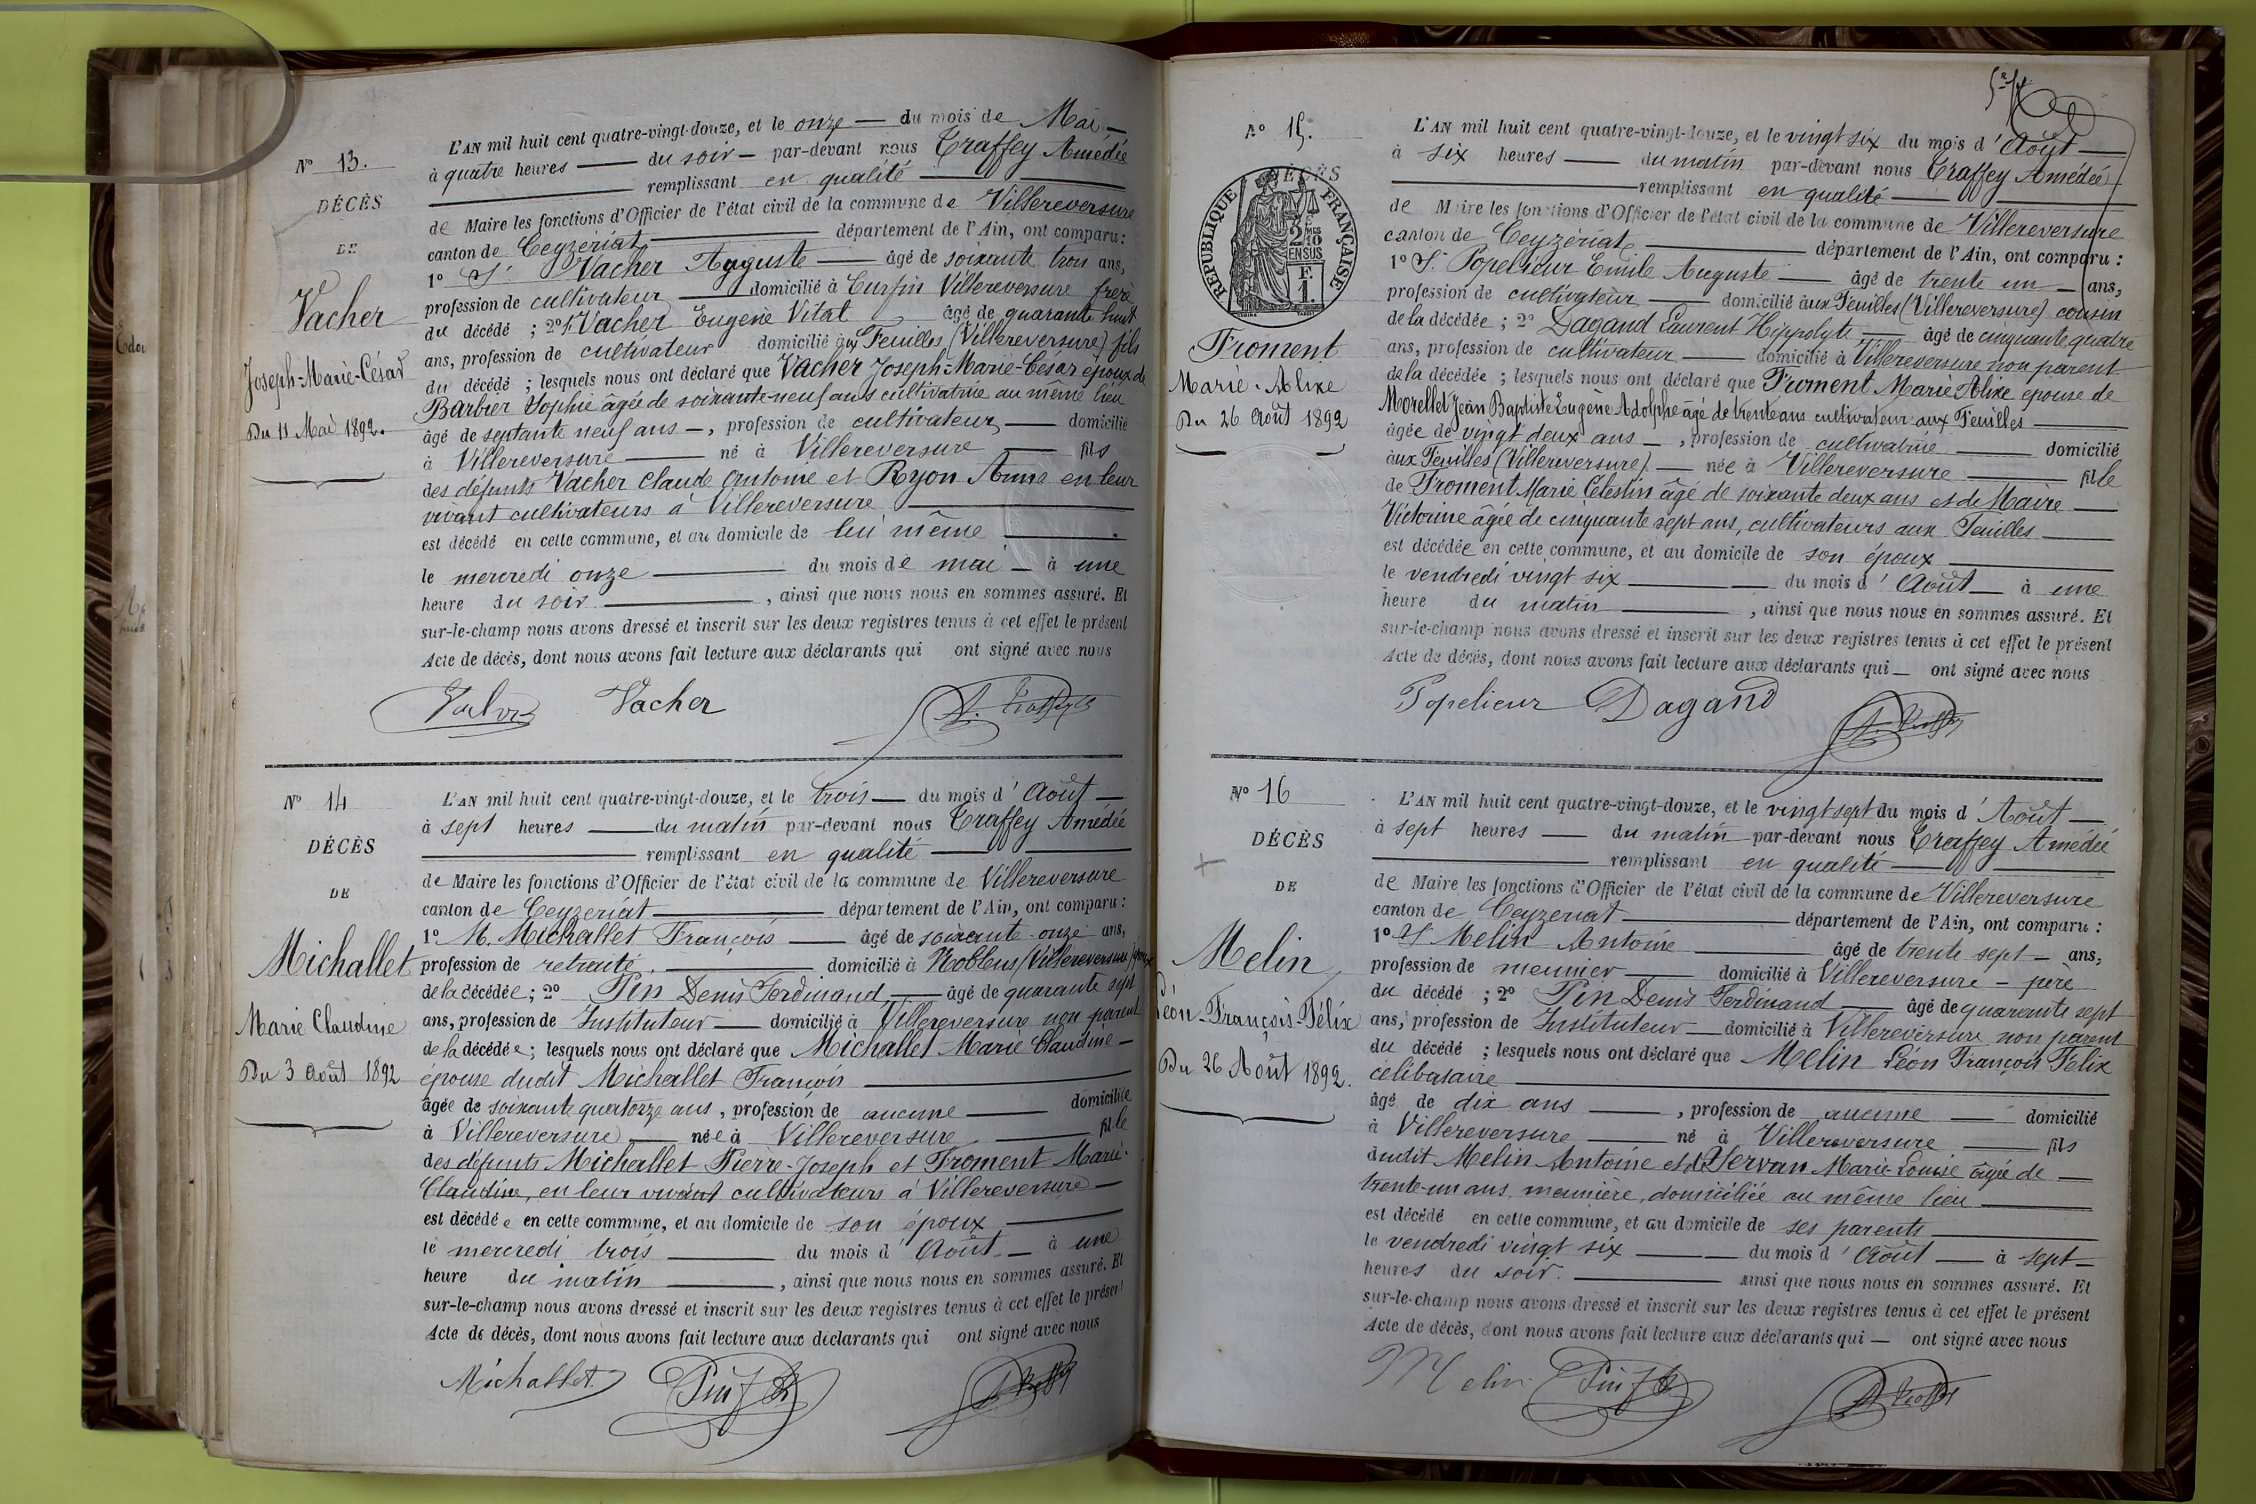 N° 13.
DÉCÈS
DE
Vacher
Joseph-Marie-César
Du 11 Mai 1892.
L'AN mil huit cent quatre-vingt-douze, et le onze — du mois de Mai —
à quatre heures — du soir — par-devant nous Traffey Amédée
remplissant en qualité
de Maire les fonctions d'Officier de l'état civil de la commune de Villereversure
canton de Ceyzériat département de l'Ain, ont comparu :
1° Sr Vacher Auguste — âgé de soixante trois ans,
profession de cultivateur — domicilié à Turfin Villereversure frère
du décédé ; 2° Sr Vacher Eugène Vital âgé de quarante huit
ans, profession de cultivateur domicilié aux Feuilles (Villereversure) fils
du décédé ; lesquels nous ont déclaré que Vacher Joseph-Marie-César époux de
Barbier Sophie âgée de soixante-neuf ans cultivatrice au même lieu
âgé de septante neuf ans —, profession de cultivateur — domicilié
à Villereversure — né à Villereversure — fils
des défunts Vacher Claude Antoine et Ryon Anne en leur
vivant cultivateurs à Villereversure
est décédé en cette commune, et au domicile de lui même
le mercredi onze — du mois de mai — à une
heure du soir — , ainsi que nous nous en sommes assuré. Et
sur-le-champ nous avons dressé et inscrit sur les deux registres tenus à cet effet le présent
Acte de décès, dont nous avons fait lecture aux déclarants qui ont signé avec nous
Vacher Vacher A. Traffey
N° 14
DÉCÈS
DE
Michallet
Marie Claudine
Du 3 Août 1892
L'AN mil huit cent quatre-vingt-douze, et le trois — du mois d'Août —
à sept heures — du matin par-devant nous Traffey Amédée
remplissant en qualité
de Maire les fonctions d'Officier de l'état civil de la commune de Villereversure
canton de Ceyzériat département de l'Ain, ont comparu :
1° M. Michallet François — âgé de soixante-onze ans,
profession de retraité — domicilié à Noblens (Villereversure) époux
de la décédée ; 2° Pin Denis Ferdinand — âgé de quarante sept
ans, profession de Instituteur — domicilié à Villereversure non parent
de la décédée ; lesquels nous ont déclaré que Michallet Marie Claudine —
épouse dudit Michallet François
âgée de soixante quatorze ans, profession de aucune — domiciliée
à Villereversure — née à Villereversure — fille
des défunts Michallet Pierre-Joseph et Froment Marie-
Claudine, en leur vivant cultivateurs à Villereversure —
est décédée en cette commune, et au domicile de son époux
le mercredi trois — du mois d'Août — à une
heure du matin — , ainsi que nous nous en sommes assuré. Et
sur-le-champ nous avons dressé et inscrit sur les deux registres tenus à cet effet le présent
Acte de décès, dont nous avons fait lecture aux déclarants qui ont signé avec nous
Michallet Pin f d A. Traffey
N° 15.
DÉCÈS
RÉPUBLIQUE FRANÇAISE
2 MES 10
EN SUS
F.
1.
Froment
Marie-Alixe
Du 26 Août 1892
L'AN mil huit cent quatre-vingt-douze, et le vingt six du mois d'Août —
à six heures — du matin par-devant nous Traffey Amédée
remplissant en qualité
de Maire les fonctions d'Officier de l'état civil de la commune de Villereversure
canton de Ceyzériat département de l'Ain, ont comparu :
1° Sr Popelieur Emile Auguste — âgé de trente un — ans,
profession de cultivateur — domicilié aux Feuilles (Villereversure) cousin
de la décédée ; 2° Dagand Laurent Hippolyte — âgé de cinquante quatre
ans, profession de cultivateur — domicilié à Villereversure non parent
de la décédée ; lesquels nous ont déclaré que Froment Marie Alixe épouse de
Morellet Jean Baptiste Eugène Adolphe âgé de trente ans cultivateur aux Feuilles
âgée de vingt deux ans —, profession de cultivatrice — domicilié
aux Feuilles (Villereversure) — née à Villereversure — fille
de Froment Marie Célestin âgé de soixante deux ans et de Maire —
Victorine âgée de cinquante sept ans, cultivateurs aux Feuilles —
est décédée en cette commune, et au domicile de son époux
le vendredi vingt six — du mois d'Août — à une
heure du matin — , ainsi que nous nous en sommes assuré. Et
sur-le-champ nous avons dressé et inscrit sur les deux registres tenus à cet effet le présent
Acte de décès, dont nous avons fait lecture aux déclarants qui — ont signé avec nous
Popelieur Dagand A. Traffey
N° 16
DÉCÈS
DE
Melin
Léon-François-Félix
Du 26 Août 1892.
L'AN mil huit cent quatre-vingt-douze, et le vingt sept du mois d'Août —
à sept heures — du matin par-devant nous Traffey Amédée
remplissant en qualité
de Maire les fonctions d'Officier de l'état civil de la commune de Villereversure
canton de Ceyzériat département de l'Ain, ont comparu :
1° Sr Melin Antoine — âgé de trente sept — ans,
profession de meunier — domicilié à Villereversure — père
du décédé ; 2° Pin Denis Ferdinand — âgé de quarante sept
ans, profession de Instituteur — domicilié à Villereversure non parent
du décédé ; lesquels nous ont déclaré que Melin Léon François Félix
célibataire
âgé de dix ans — , profession de aucune — domicilié
à Villereversure — né à Villereversure — fils
dudit Melin Antoine et de Servan Marie-Louise âgée de —
trente-un ans, meunière, domiciliée au même lieu
est décédé en cette commune, et au domicile de ses parents
le vendredi vingt six — du mois d'Août — à sept —
heures du soir. — ainsi que nous nous en sommes assuré. Et
sur-le-champ nous avons dressé et inscrit sur les deux registres tenus à cet effet le présent
Acte de décès, dont nous avons fait lecture aux déclarants qui — ont signé avec nous
Melin Pin f d A. Traffey